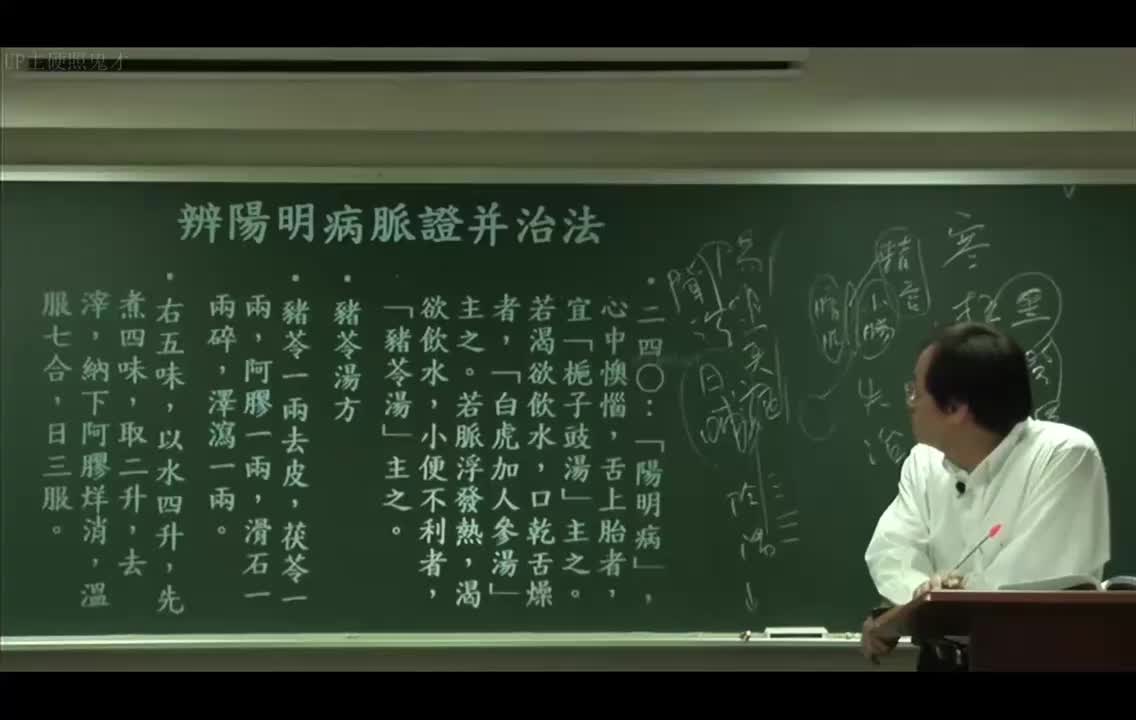 UP主硬照鬼才
辨陽明病脈證并治法
・二四〇：「陽明病」，
心中懊惱，舌上胎者，
宜「梔子豉湯」主之。
若渴欲飲水，口乾舌燥
者，「白虎加人參湯」
主之。若脈浮發熱，渴
欲飲水，小便不利者，
「豬苓湯」主之。
・豬苓湯方
・豬苓一兩去皮，茯苓一
兩，阿膠一兩，滑石一
兩碎，澤瀉一兩。
・右五味，以水四升，先
煮四味，取二升，去
滓，納下阿膠烊消，溫
服七合，日三服。
寒
小腸